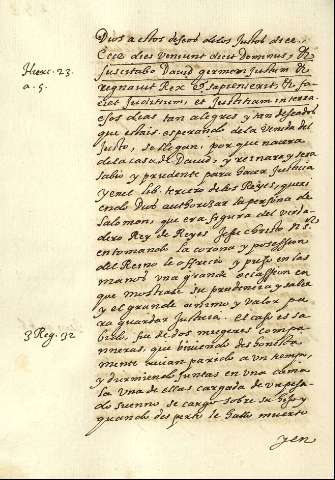 Dios a estos deseos de los Justos dice.
Ecce dies veniunt dicit Dominus, &
Hiere. 23.
suscitabo David germen Justum &
a. 5.
regnavit Rex & sapiens erit, & fa
ciet Juditium, et Justitiam in terra
esos dias tan alegres y tan deseados
que estais esperando de la venida del
Justo, se llegan, por que nacera
de la casa de David, y reinara y sera
sabio y prudente para hacer Justicia
y en el lib. tercero de los Reyes, queri
endo Dios authorizar la persona de
Salomon, que era figura del verda
dero Rey de Reyes Jesu Christo nr̃o S.
en tomando la corona y possession
del Reino le ofrecio y puso en las
manos una grande ocassion en
que mostrase su prudencia y saber
y el grande animo y valor pa
ra guardar Justicia. el caso es sa
3 Reg. 32
bido, fue de dos mugeres compa
nneras, que biviendo deshonesta
mente avian parido a un tiempo,
y durmiendo juntas en una cama
la una de ellas cargada de un pesa
do suenno se cargo sobre su hijo y
quando desperto le hallo muerto
y en